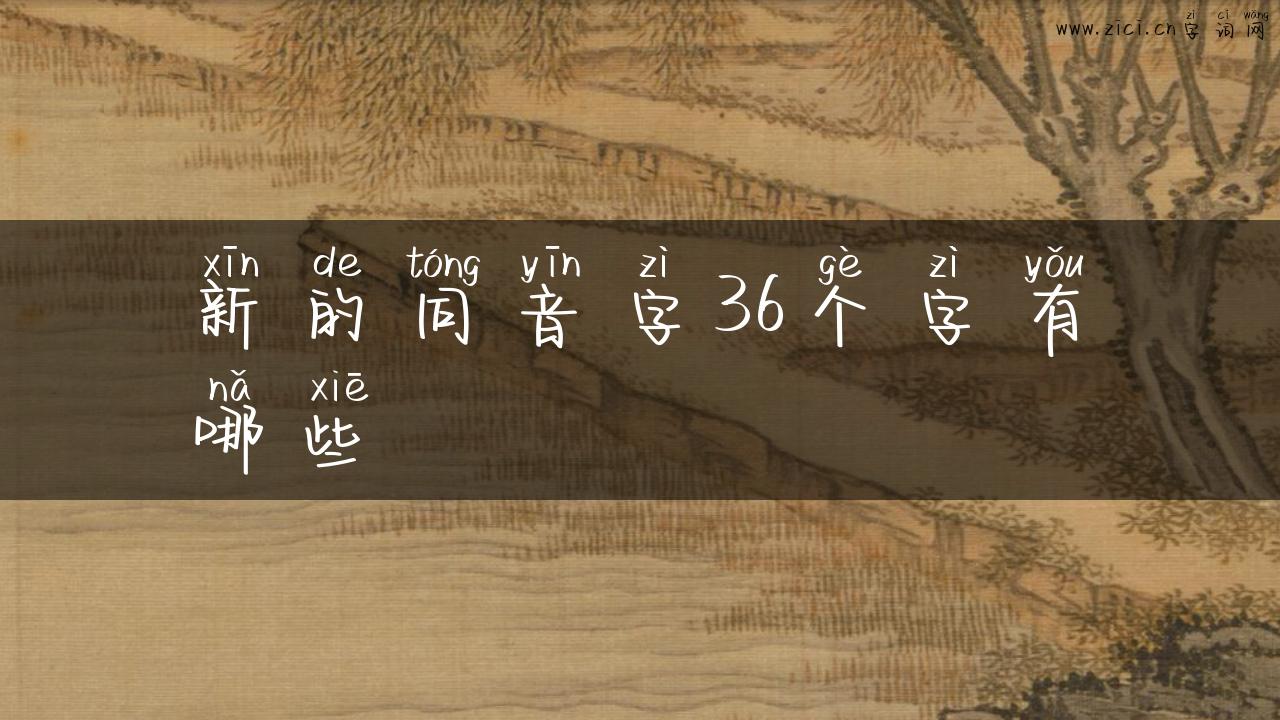 zì cí wǎng
www.zici.cn字词网
xīn de tóng yīn zì gè zì yǒu
新的同音字36个字有
nǎ xiē
哪些